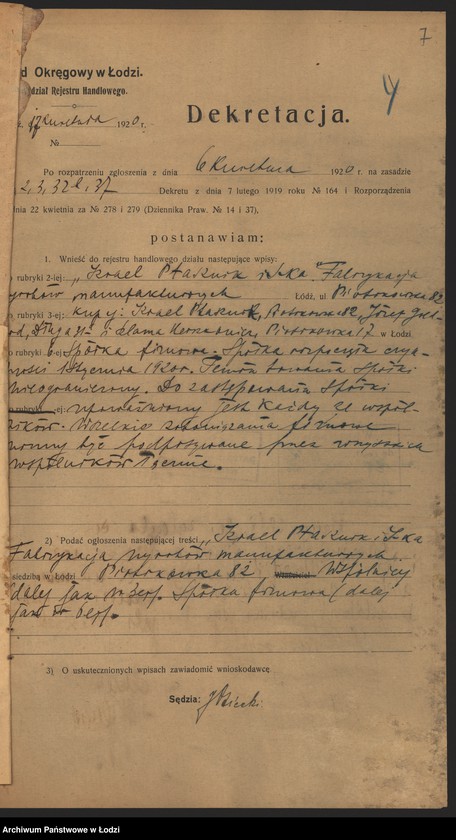 7
4
d Okręgowy w Łodzi.
dział Rejestru Handlowego.
17 kwietnia 1920 r.
Dekretacja.
№
Po rozpatrzeniu zgłoszenia z dnia 6 kwietnia 1920 r. na zasadzie
2, 3, 37 Dekretu z dnia 7 lutego 1919 roku № 164 i Rozporządzenia
dnia 22 kwietnia za № 278 i 279 (Dziennika Praw. № 14 i 37),
postanawiam:
1. Wnieść do rejestru handlowego działu następujące wpisy:
o rubryki 2-ej: „Izrael Ptasznik i S-ka" Fabrykacja
wyrobów manufakturowych Łódź, ul Piotrkowska 82
o rubryki 3-ej: kupcy: Izrael Ptasznik, Piotrkowska 82, Józef
Długa i Piotrkowska 17 w Łodzi
o rubryki 6-ej Spółka firmowa. Spółka rozpoczęła czyn-
ności stycznia Termin trwania Spółki
nieograniczony. Do zastępowania Spółki
o rubryki ej: upoważniony jest każdy ze współ-
ników. Wszelkie zobowiązania firmowe
winny być podpisywane przez
wspólników łącznie.
2) Podać ogłoszenia następującej treści „Izrael Ptasznik i S-ka
Fabrykacja wyrobów manufakturowych
siedzibą w Łodzi Piotrkowska 82 Właściciel Wspólnicy
dalej jak w 3 Spółka firmowa (dalej
jak w 6
3) O uskutecznionych wpisach zawiadomić wnioskodawcę
Sędzia:
Archiwum Państwowe w Łodzi